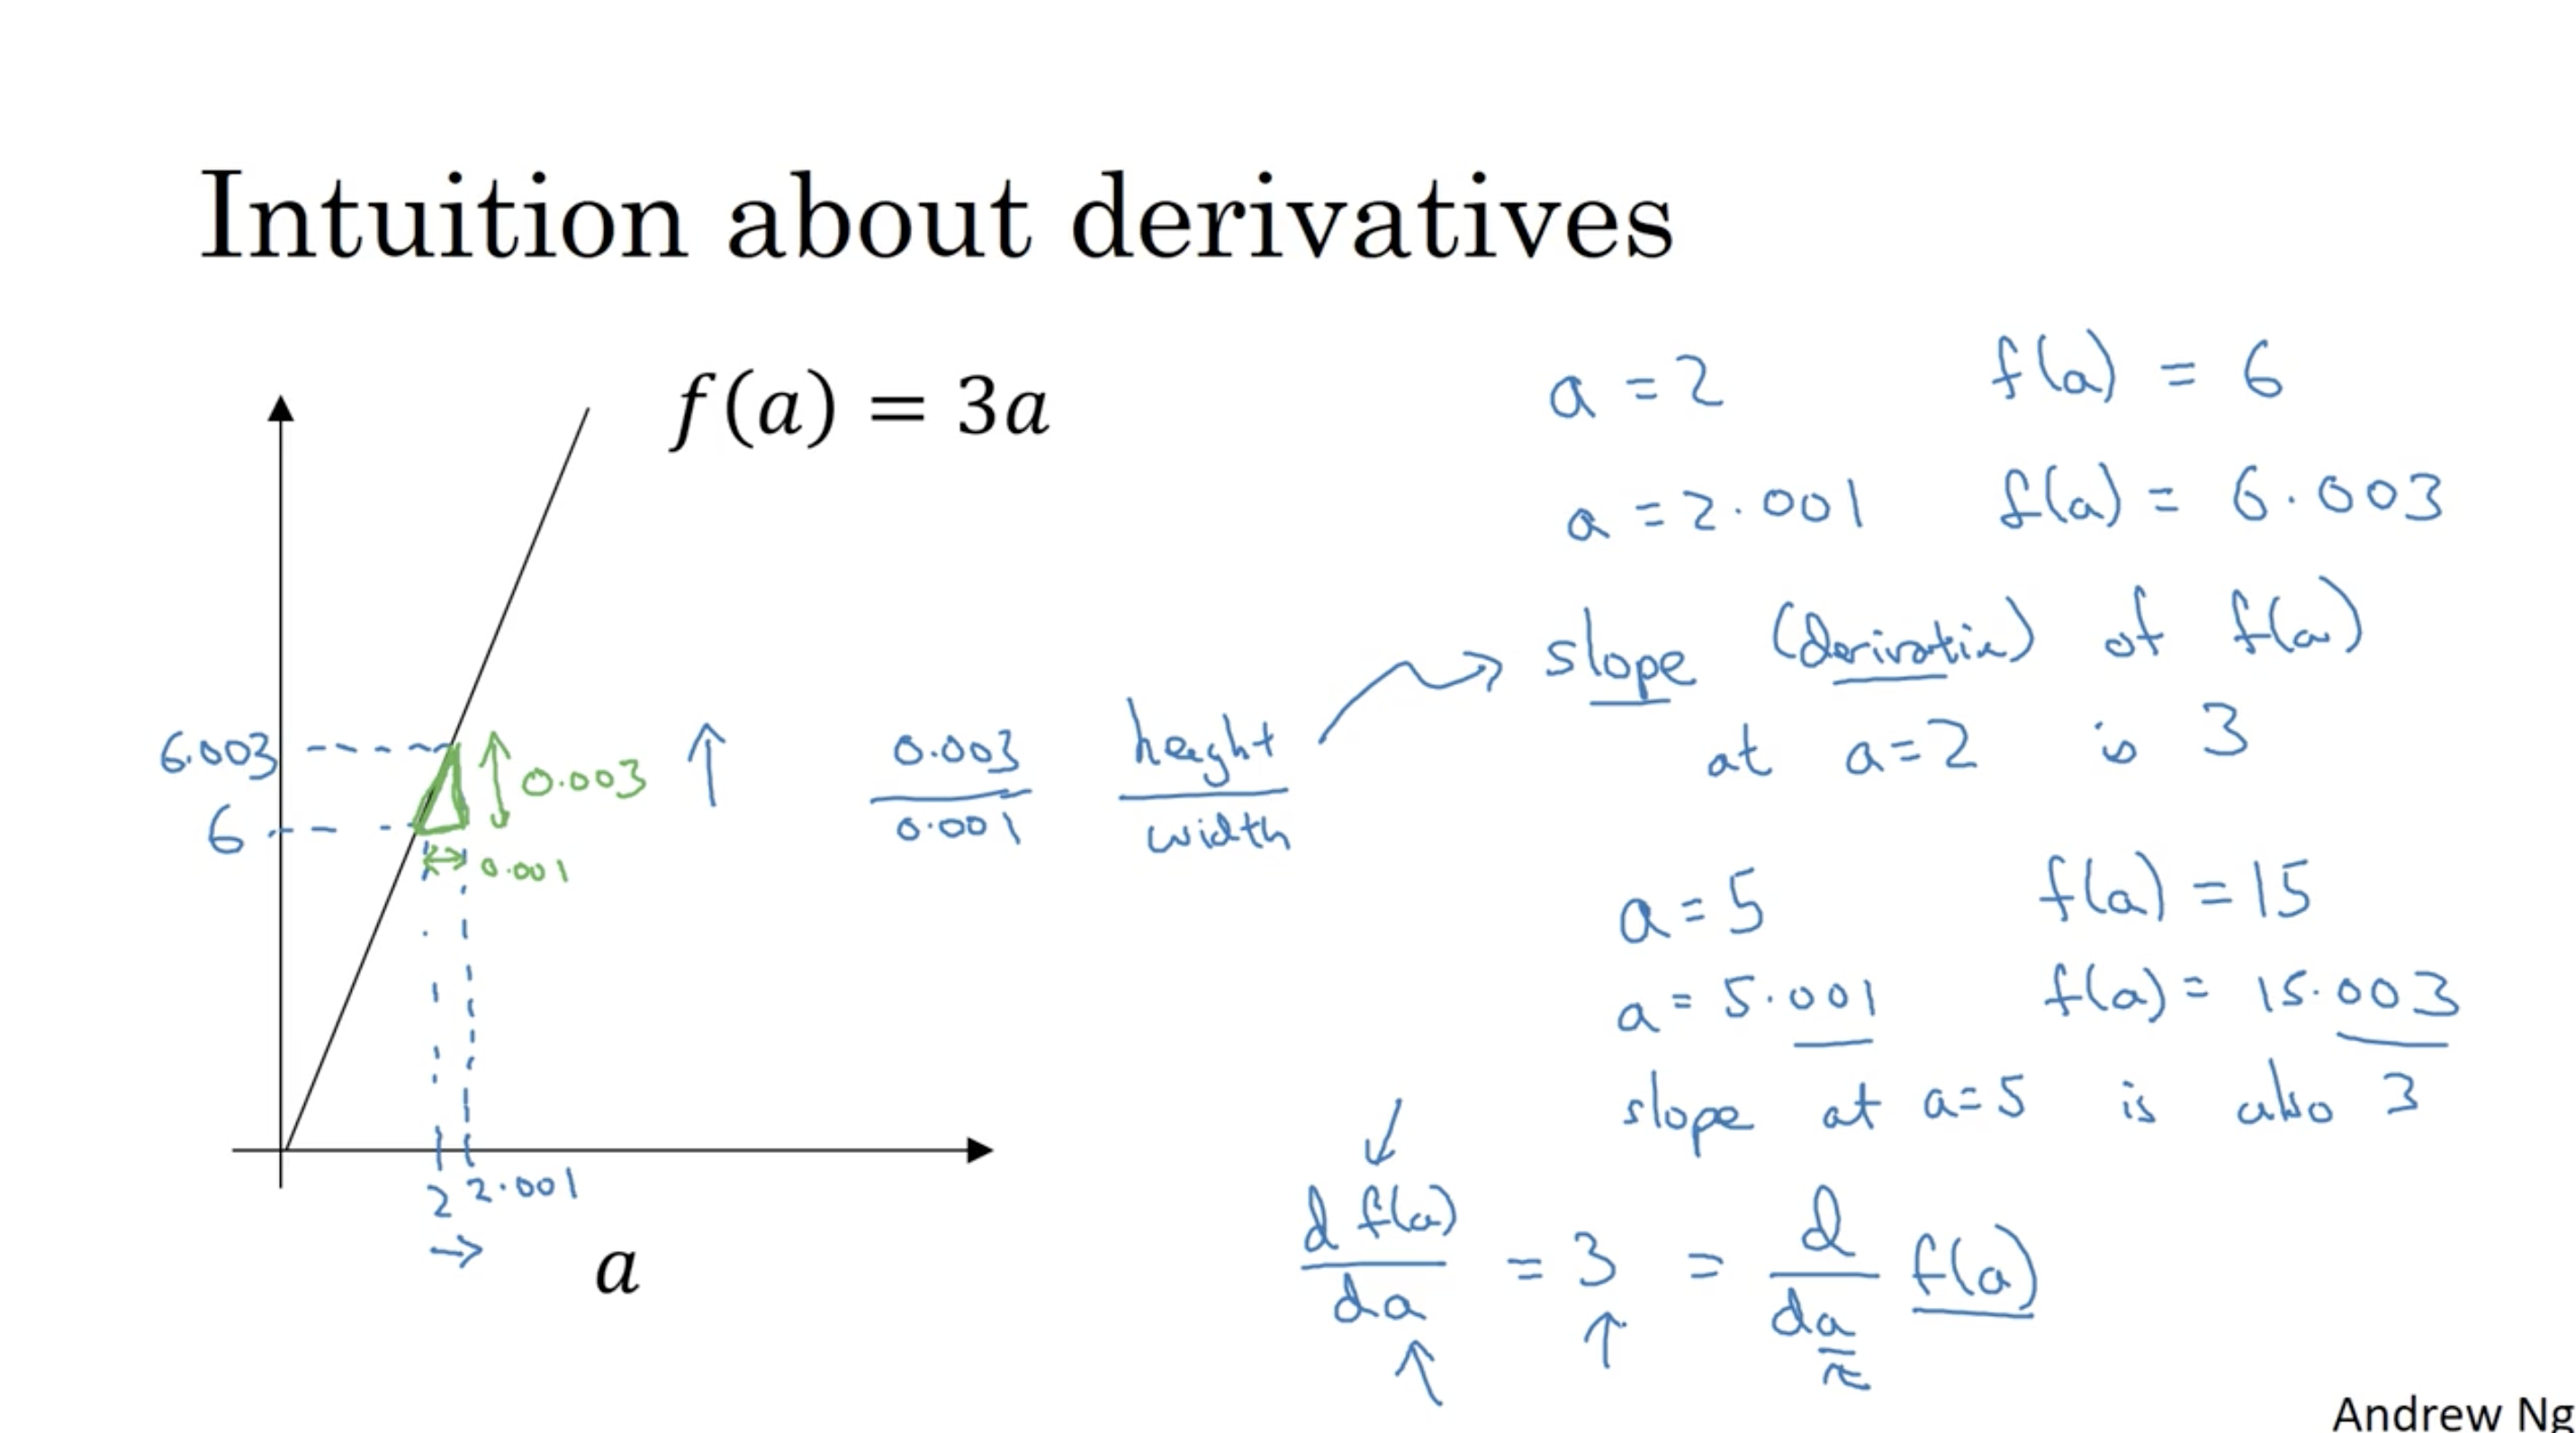 Intuition about derivatives
f(a) = 3a
6.003
6
0.003
0.001
2 2.001
a
0.003
0.001
height
width
a = 2 f(a) = 6
a = 2.001 f(a) = 6.003
slope (derivative) of f(a)
at a = 2 is 3
a = 5 f(a) = 15
a = 5.001 f(a) = 15.003
slope at a = 5 is also 3
d f(a) / da = 3 = d / da f(a)
Andrew Ng